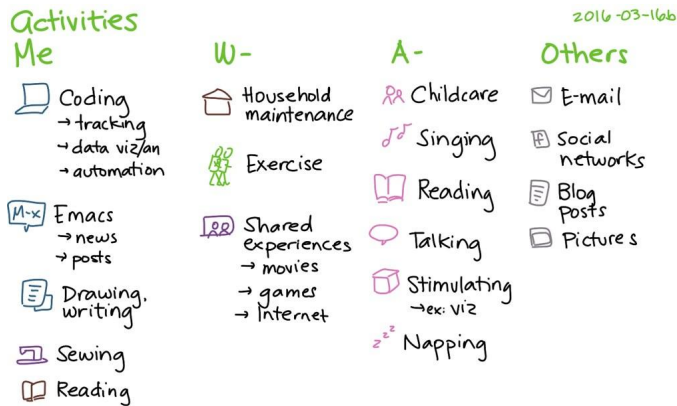 Activities
2016-03-16b
Me
Coding
→ tracking
→ data viz/an
→ automation
M-x Emacs
→ news
→ posts
Drawing,
writing
Sewing
Reading
W-
Household
maintenance
Exercise
Shared
experiences
→ movies
→ games
→ Internet
A-
Childcare
Singing
Reading
Talking
Stimulating
→ ex: viz
zzz Napping
Others
E-mail
f Social
networks
Blog
posts
Pictures